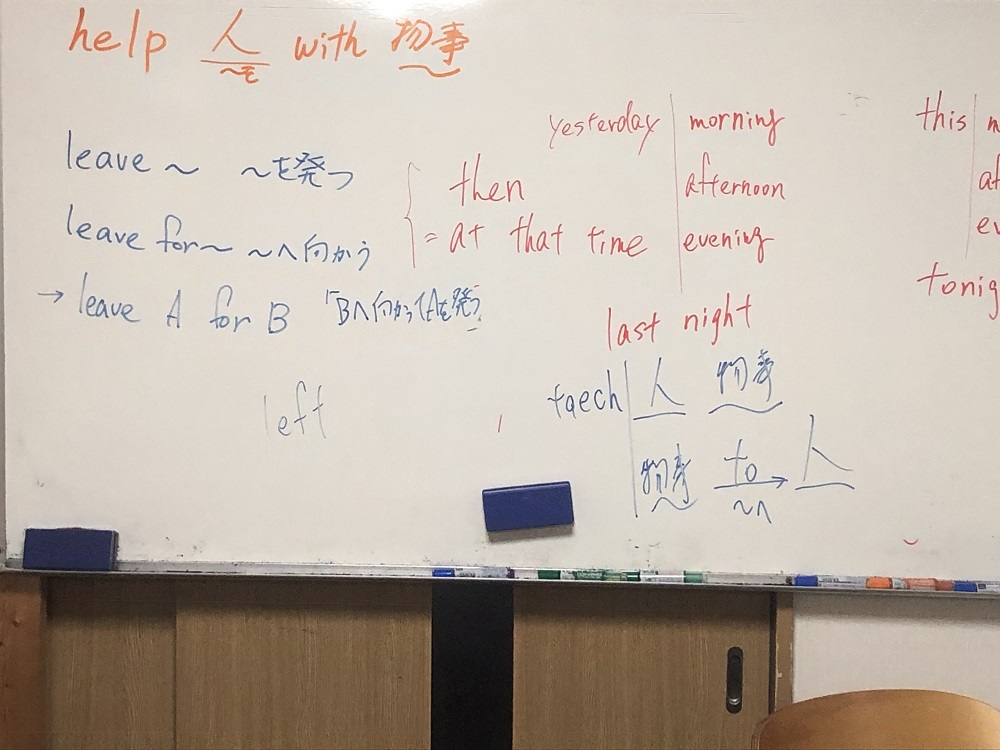 help 人 with 物事
~を
leave ~ ~を発つ
leave for ~ ~へ向かう
→ leave A for B 「Bへ向かってAを発つ」
left
then
= at that time
yesterday morning
afternoon
evening
last night
taech 人 物事
物事 to 人
~へ
this
tonig